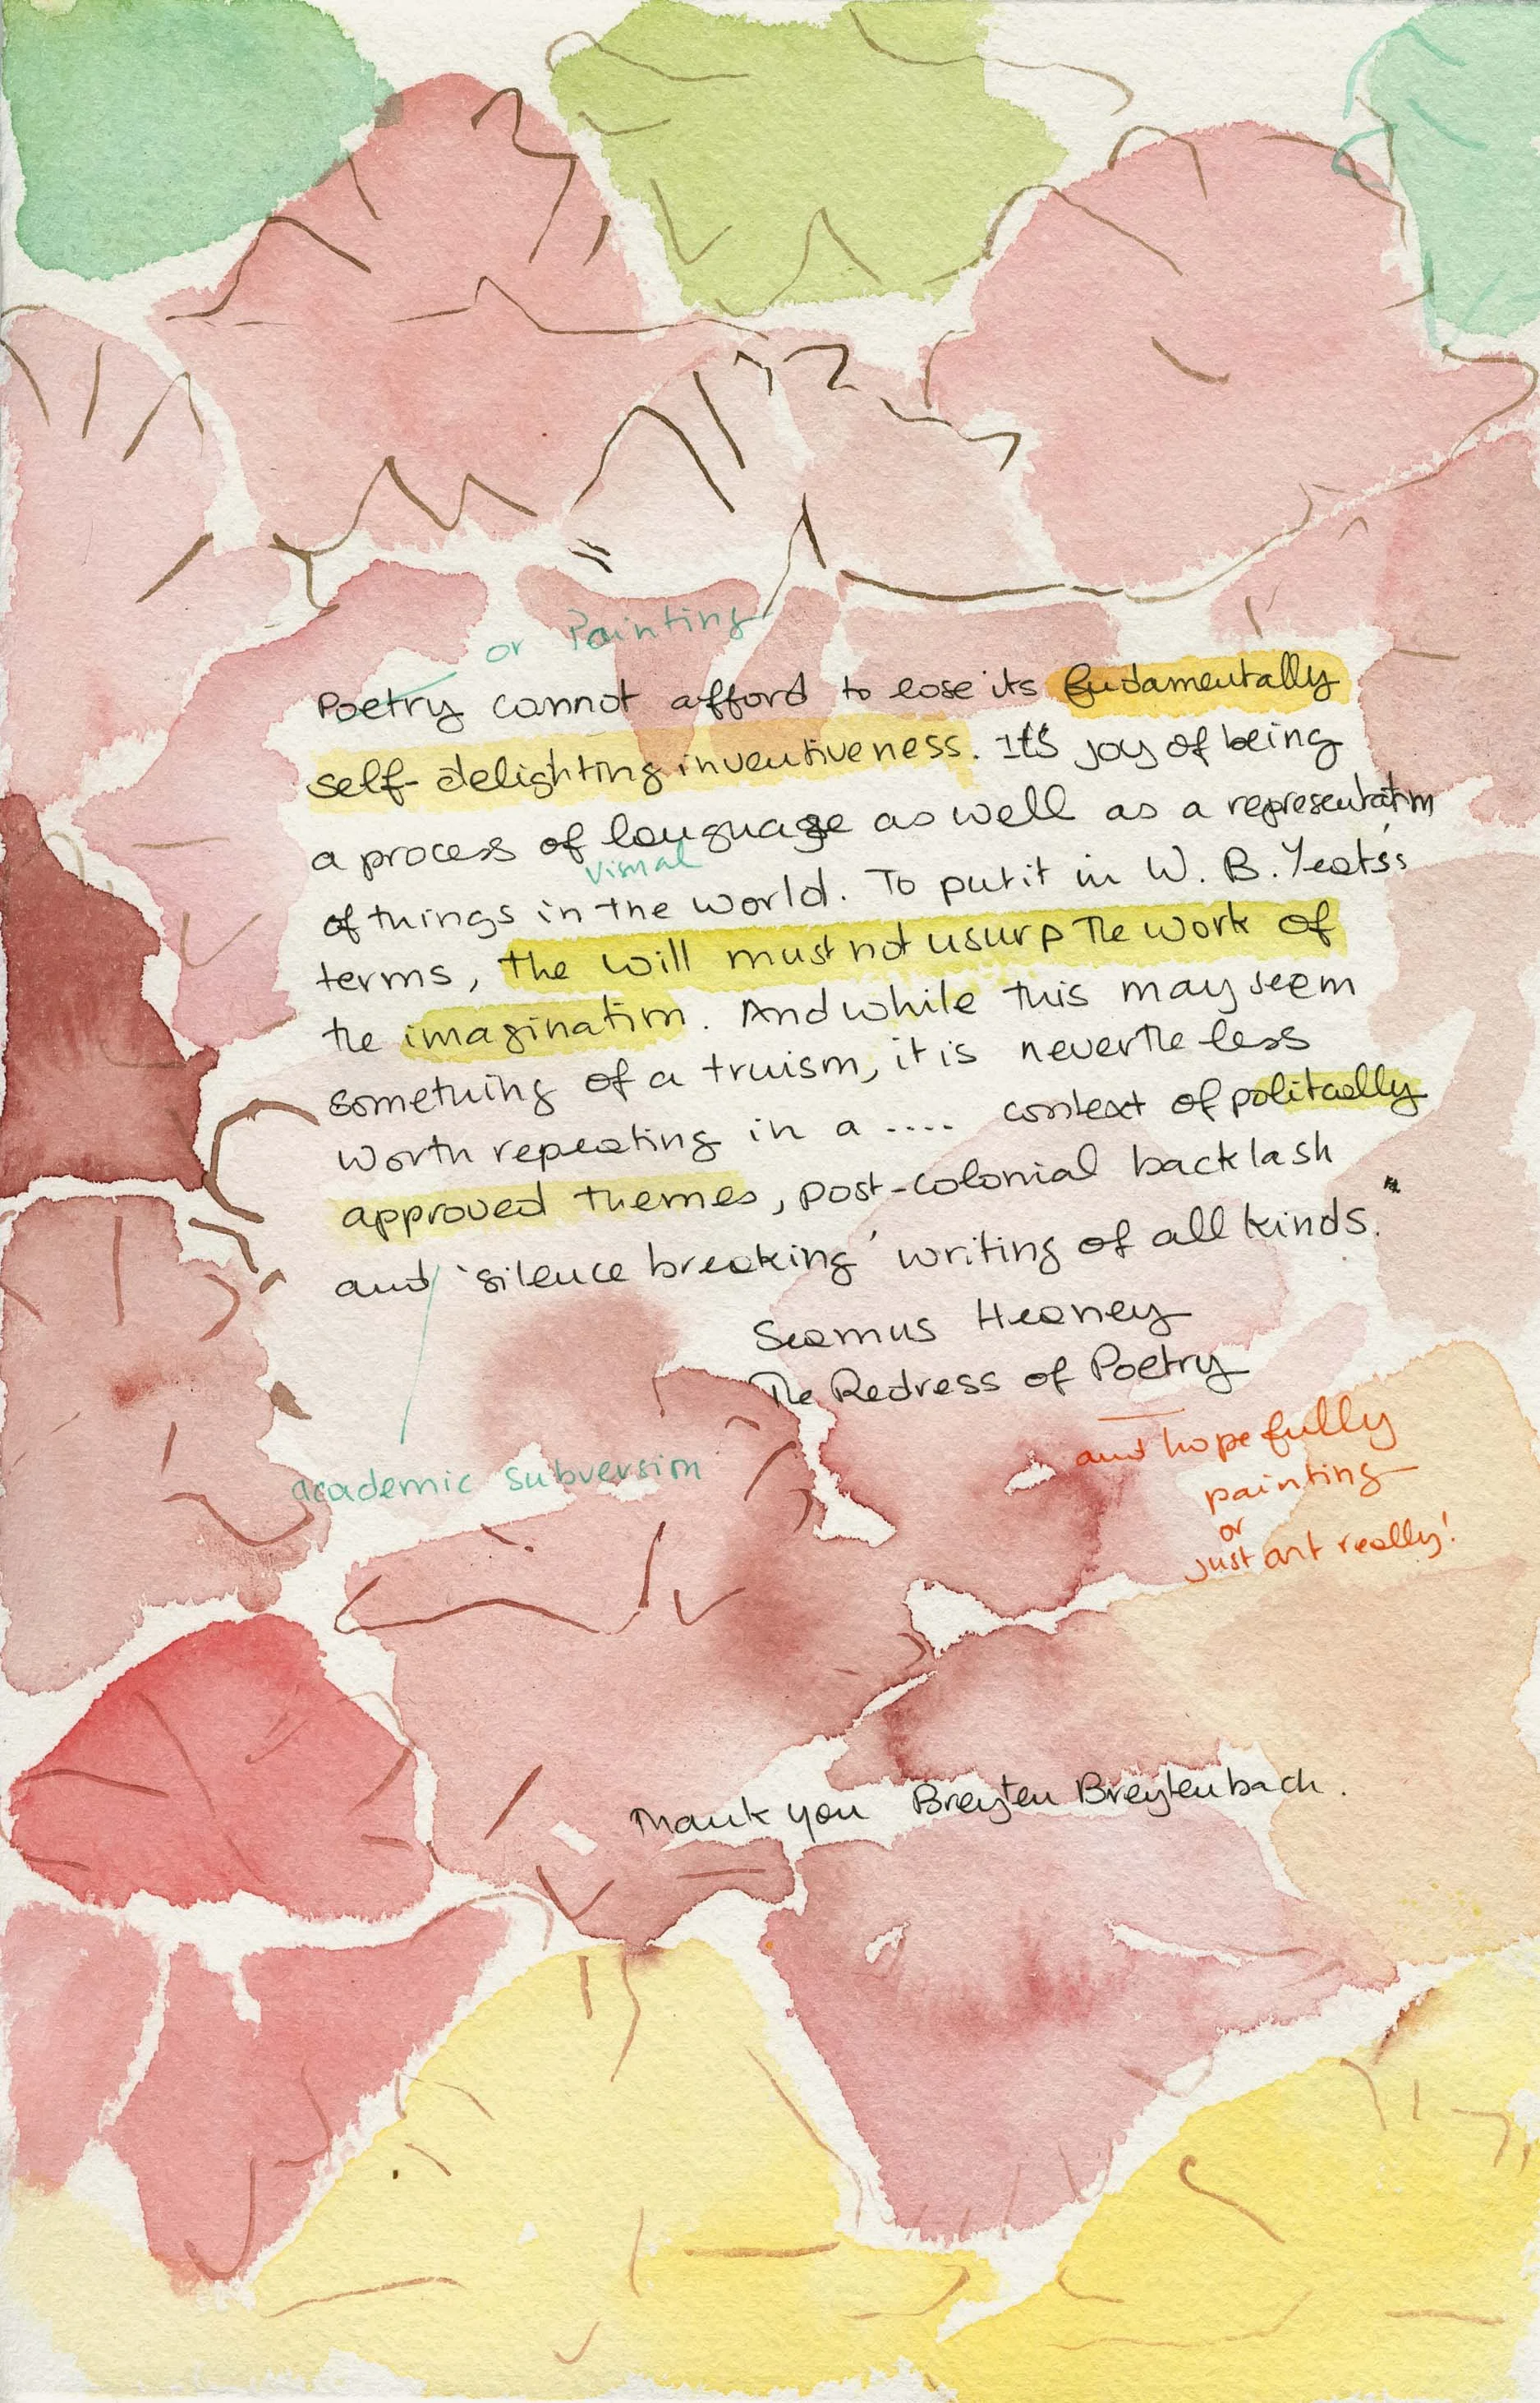 or Painting
Poetry cannot afford to lose its fudamentally
self-delighting inventiveness. It's joy of being
a process of language as well as a representation
visual
of things in the world. To put it in W. B. Yeats's
terms, the will must not usurp the work of
the imagination. And while this may seem
something of a truism, it is nevertheless
worth repeating in a .... context of politically
approved themes, post-colonial backlash
and 'silence breaking' writing of all kinds."
Seamus Heaney
The Redress of Poetry
and hopefully
painting
or
just art really!
academic subversion
Thank you Breyten Breytenbach.